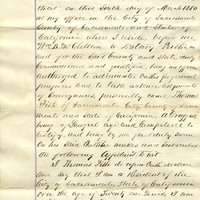 that on this tenth day of March 1880
at my office in the City of Sacramento
County of Sacramento, and State of
California when I reside, before me
Wm. B. McClellan a Notary Public
and for the said County and State, duly
Commissioned and qualified by law and
authorized to administer oaths for general
purposes and to take acknowledgments
of Conveyances personally came Thomas
Fish of Sacramento City County of Sacramento
and State of California a Person
being of lawful age and Competent to
testify, and being by me first duly sworn
on his said oath makes and subscribes
the following Affidavit to wit
I Thomas Fish do upon oath declare
and say that I am a resident of the
City of Sacramento State of California
over the age of Twenty one years I am